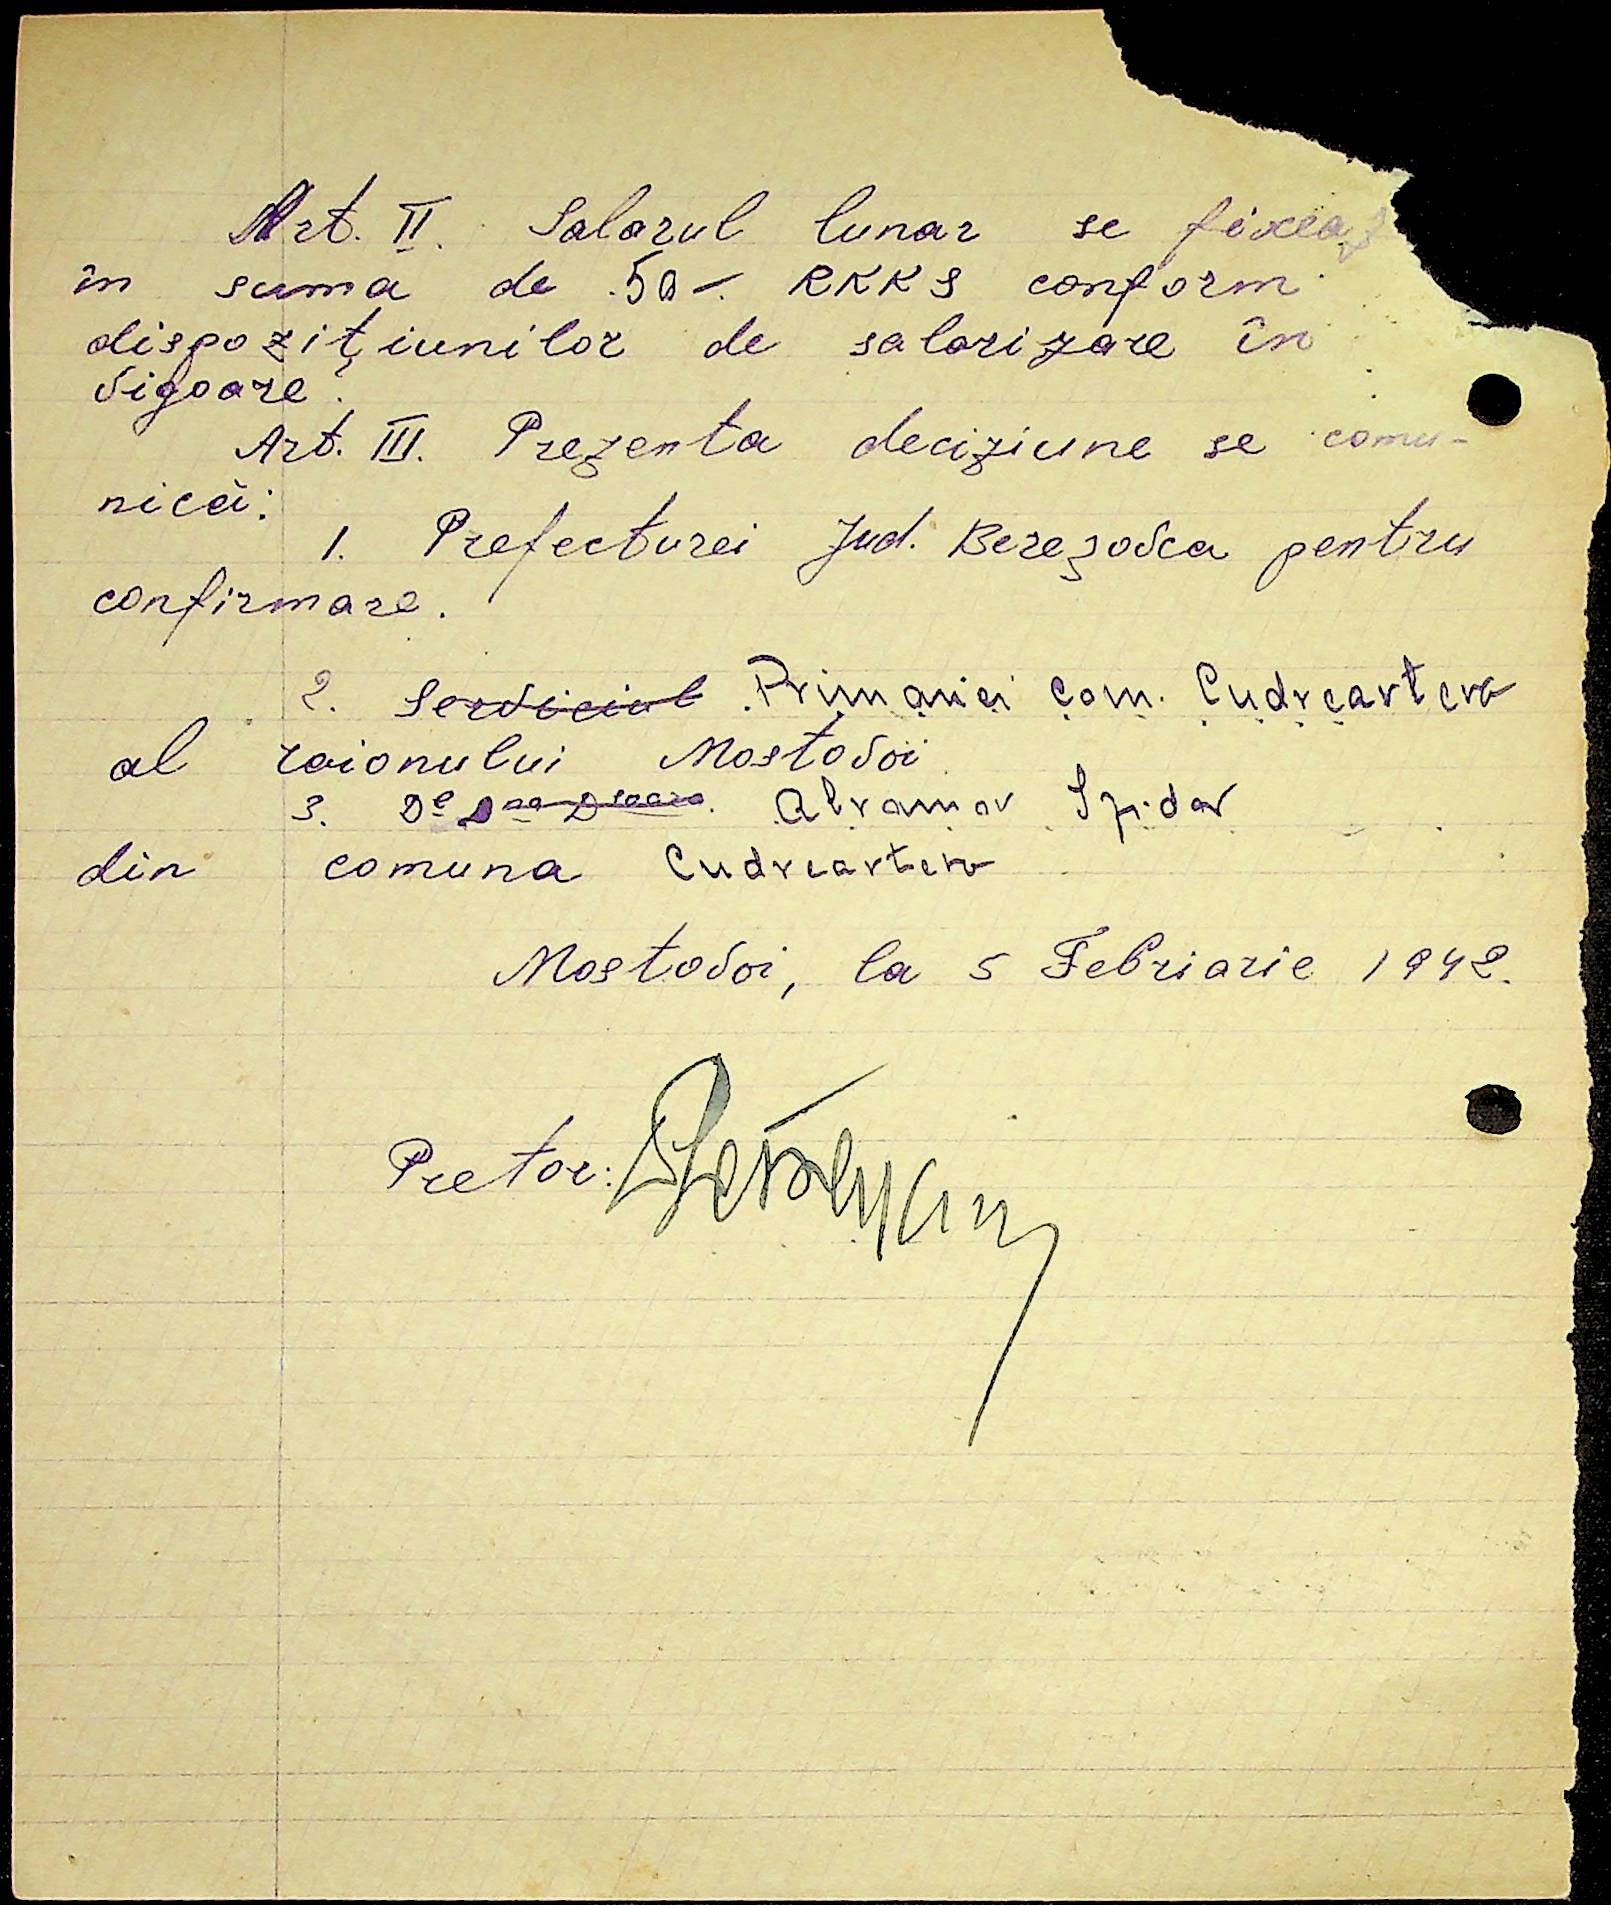 Art. II. Salarul lunar se fixeaz
în suma de 50-. RKKS conform
dispozițiunilor de salarizare în
vigoare.
Art. III. Prezenta deciziune se comu-
nică:
1. Prefecturei Jud. Berezovca pentru
confirmare.
2. Serviciul Primăriei com. Cudreartera
al raionului Mostovoi
3. Dl Dna Dsoara. Abramov
din comuna Cudreartera
Mostovoi, la 5 Febriarie 1942.
Pretor: